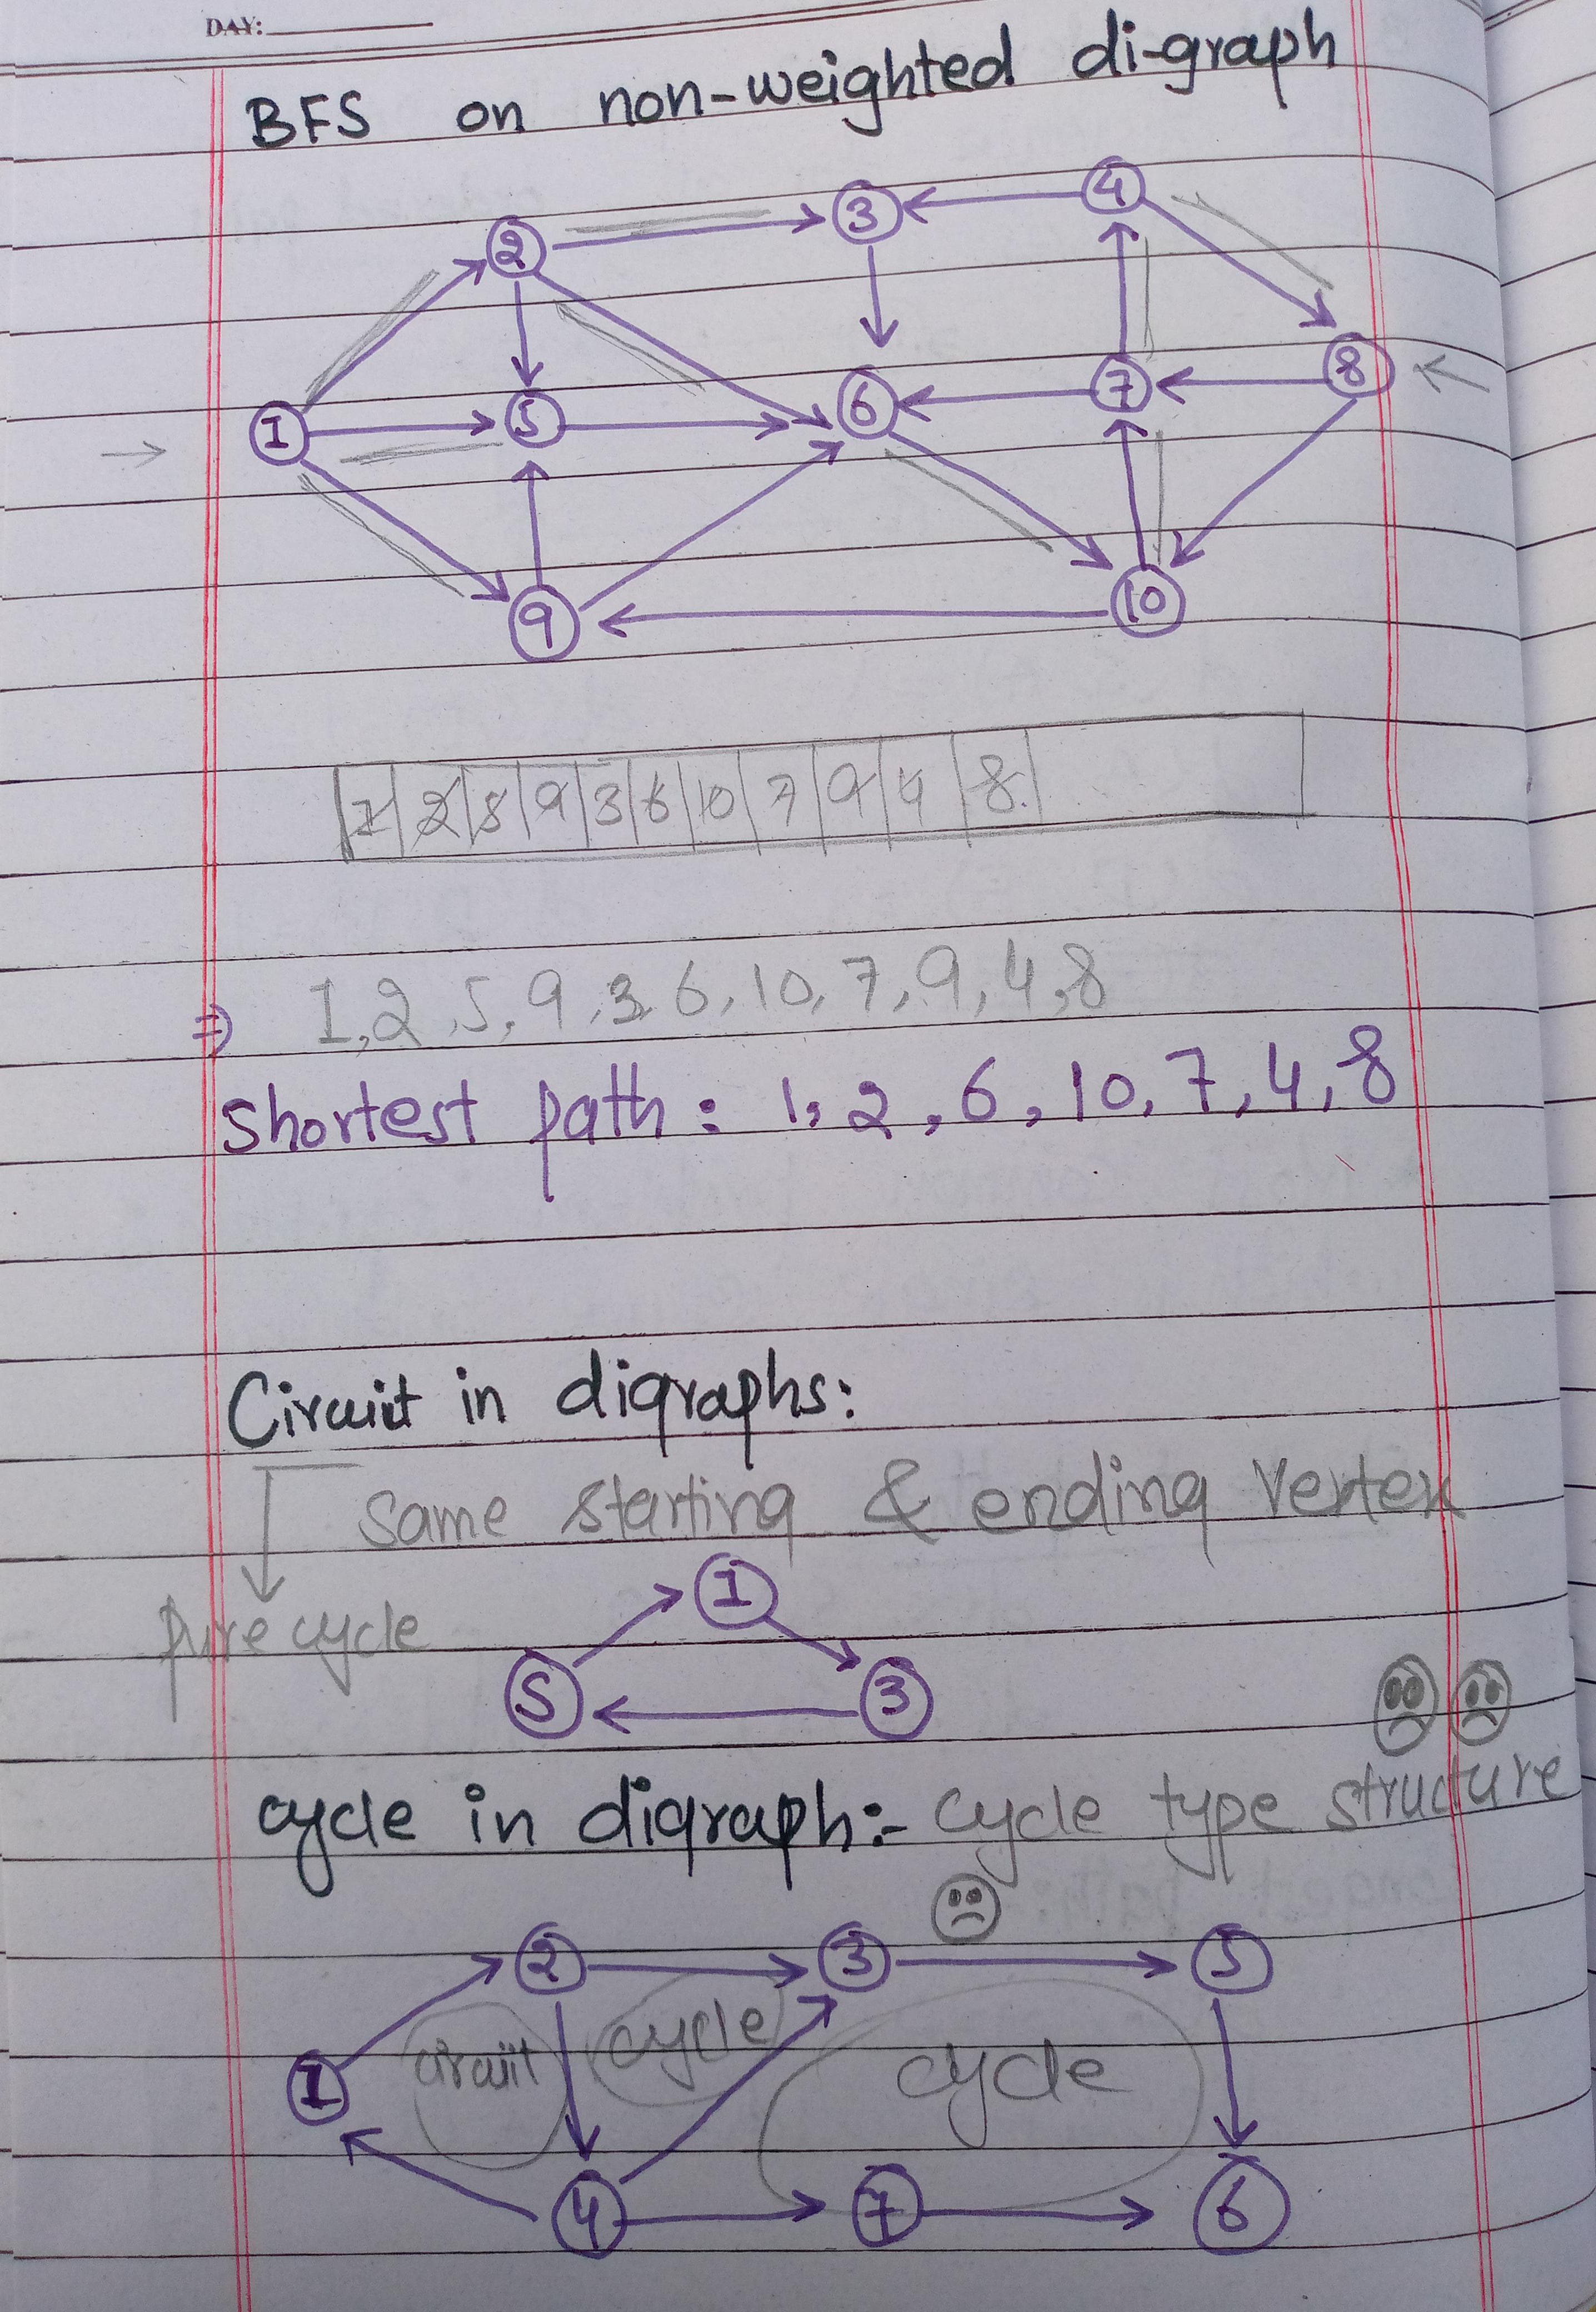 DAY:
BFS on non-weighted di-graph
2 3 4
1 5 6 7 8
9 10
1 2 5 9 3 6 10 7 9 4 8
⇒ 1,2,5,9,3,6,10,7,9,4,8
Shortest path: 1,2,6,10,7,4,8
Circuit in digraphs:
Same starting & ending Vertex
pure cycle
1
5 3
cycle in digraph:- cycle type structure
2 3 5
1 circuit cycle cycle
4 7 6